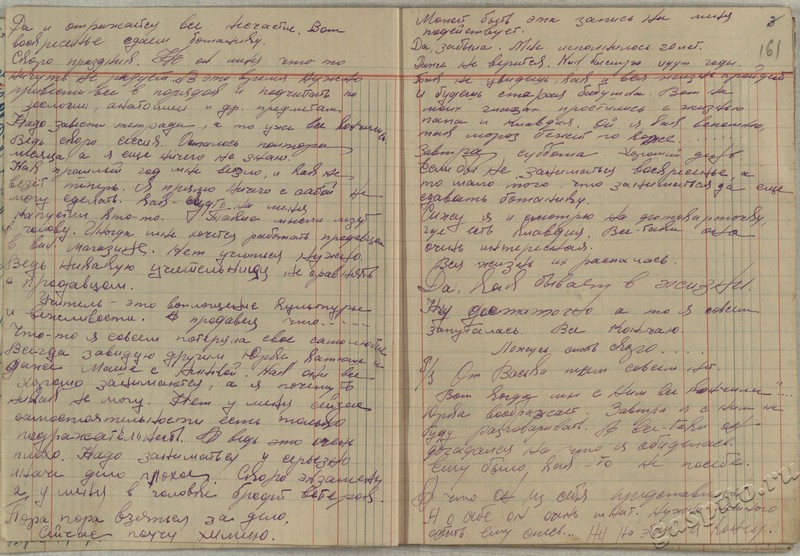 Да и отражайся все несчастье. Вот
воскресенье сдаем ботанику.
Скоро праздник. Но он меня что-то
ничуть не радует. В это время нужно
привести все в порядок и подчитать по
зоологии, анатомии и др. предметам.
Надо завести тетради, а то уже все кончились
Ведь скоро сессия. Осталось полтора
месяца! а я еще ничего не знаю.
Как прошлый год мне везло, и как не
везет теперь. Я прямо ничего с собой не
могу сделать. Как-будто на меня
напустил кто-то. Такие мысли идут
в голову. Иногда мне хочется работать продавцом
в маг. магазине. Нет учиться нужно.
Ведь никакую учительницу не сравнять
с продавцом.
Учитель - это воплощение культуры
и вежливости. А продавец что.....
Что-то я совсем потеряла свое самолюбие
Всегда завидую другим Юрке, Катюше и
даже Маше с Нинкой. Как они все
хорошо занимаются, а я почему-то
никак не могу. Нет у меня сейчас
самостоятельности есть только
подражательность. А ведь это очень
плохо. Надо заниматься у серьезно
иначе дело плохое. Скоро экзамены
а у меня в голове бродит ветерок.
Пора пора взяться за дело.
Сейчас поучу химию.
Может быть эта запись на меня
подействует.
161
Да, забыла. Мне исполнилось лет.
Даже не верится. Как быстро идут годы.
Так не увидишь, как и вся жизнь пройдет
и будешь старая бабушка. Вот на
моих глазах простились с жизнью
папа и Клавдия. Ой я как вспомню,
так мороз бежит по коже......
Завтра суббота хороший день
если бы не заниматься воскресенье, а
то мало того, что заниматься да еще
сдавать ботанику.
Сижу я и смотрю на фотокарточку,
где есть Клавдия. Все-таки она
очень интересная.
Вся жизнь их распалась.
Да, как бывает в жизни.
Ну достаточно а то я совсем
запуталась. Все кончаю.
Ложусь спать скоро.....
От Васьки писем совсем нет.
Вот когда мы с ним все кончили"...
Юрка воображает. Завтра я с ним не
буду разговаривать. А все-таки он
догадался на что я обиделась.
Ему было, как-то не по себе.
О что он из себя представляет
О себе он очень мнит. Нужно немного
сбить ему спесь... Ну на этом кончаю.
gasprno.ru